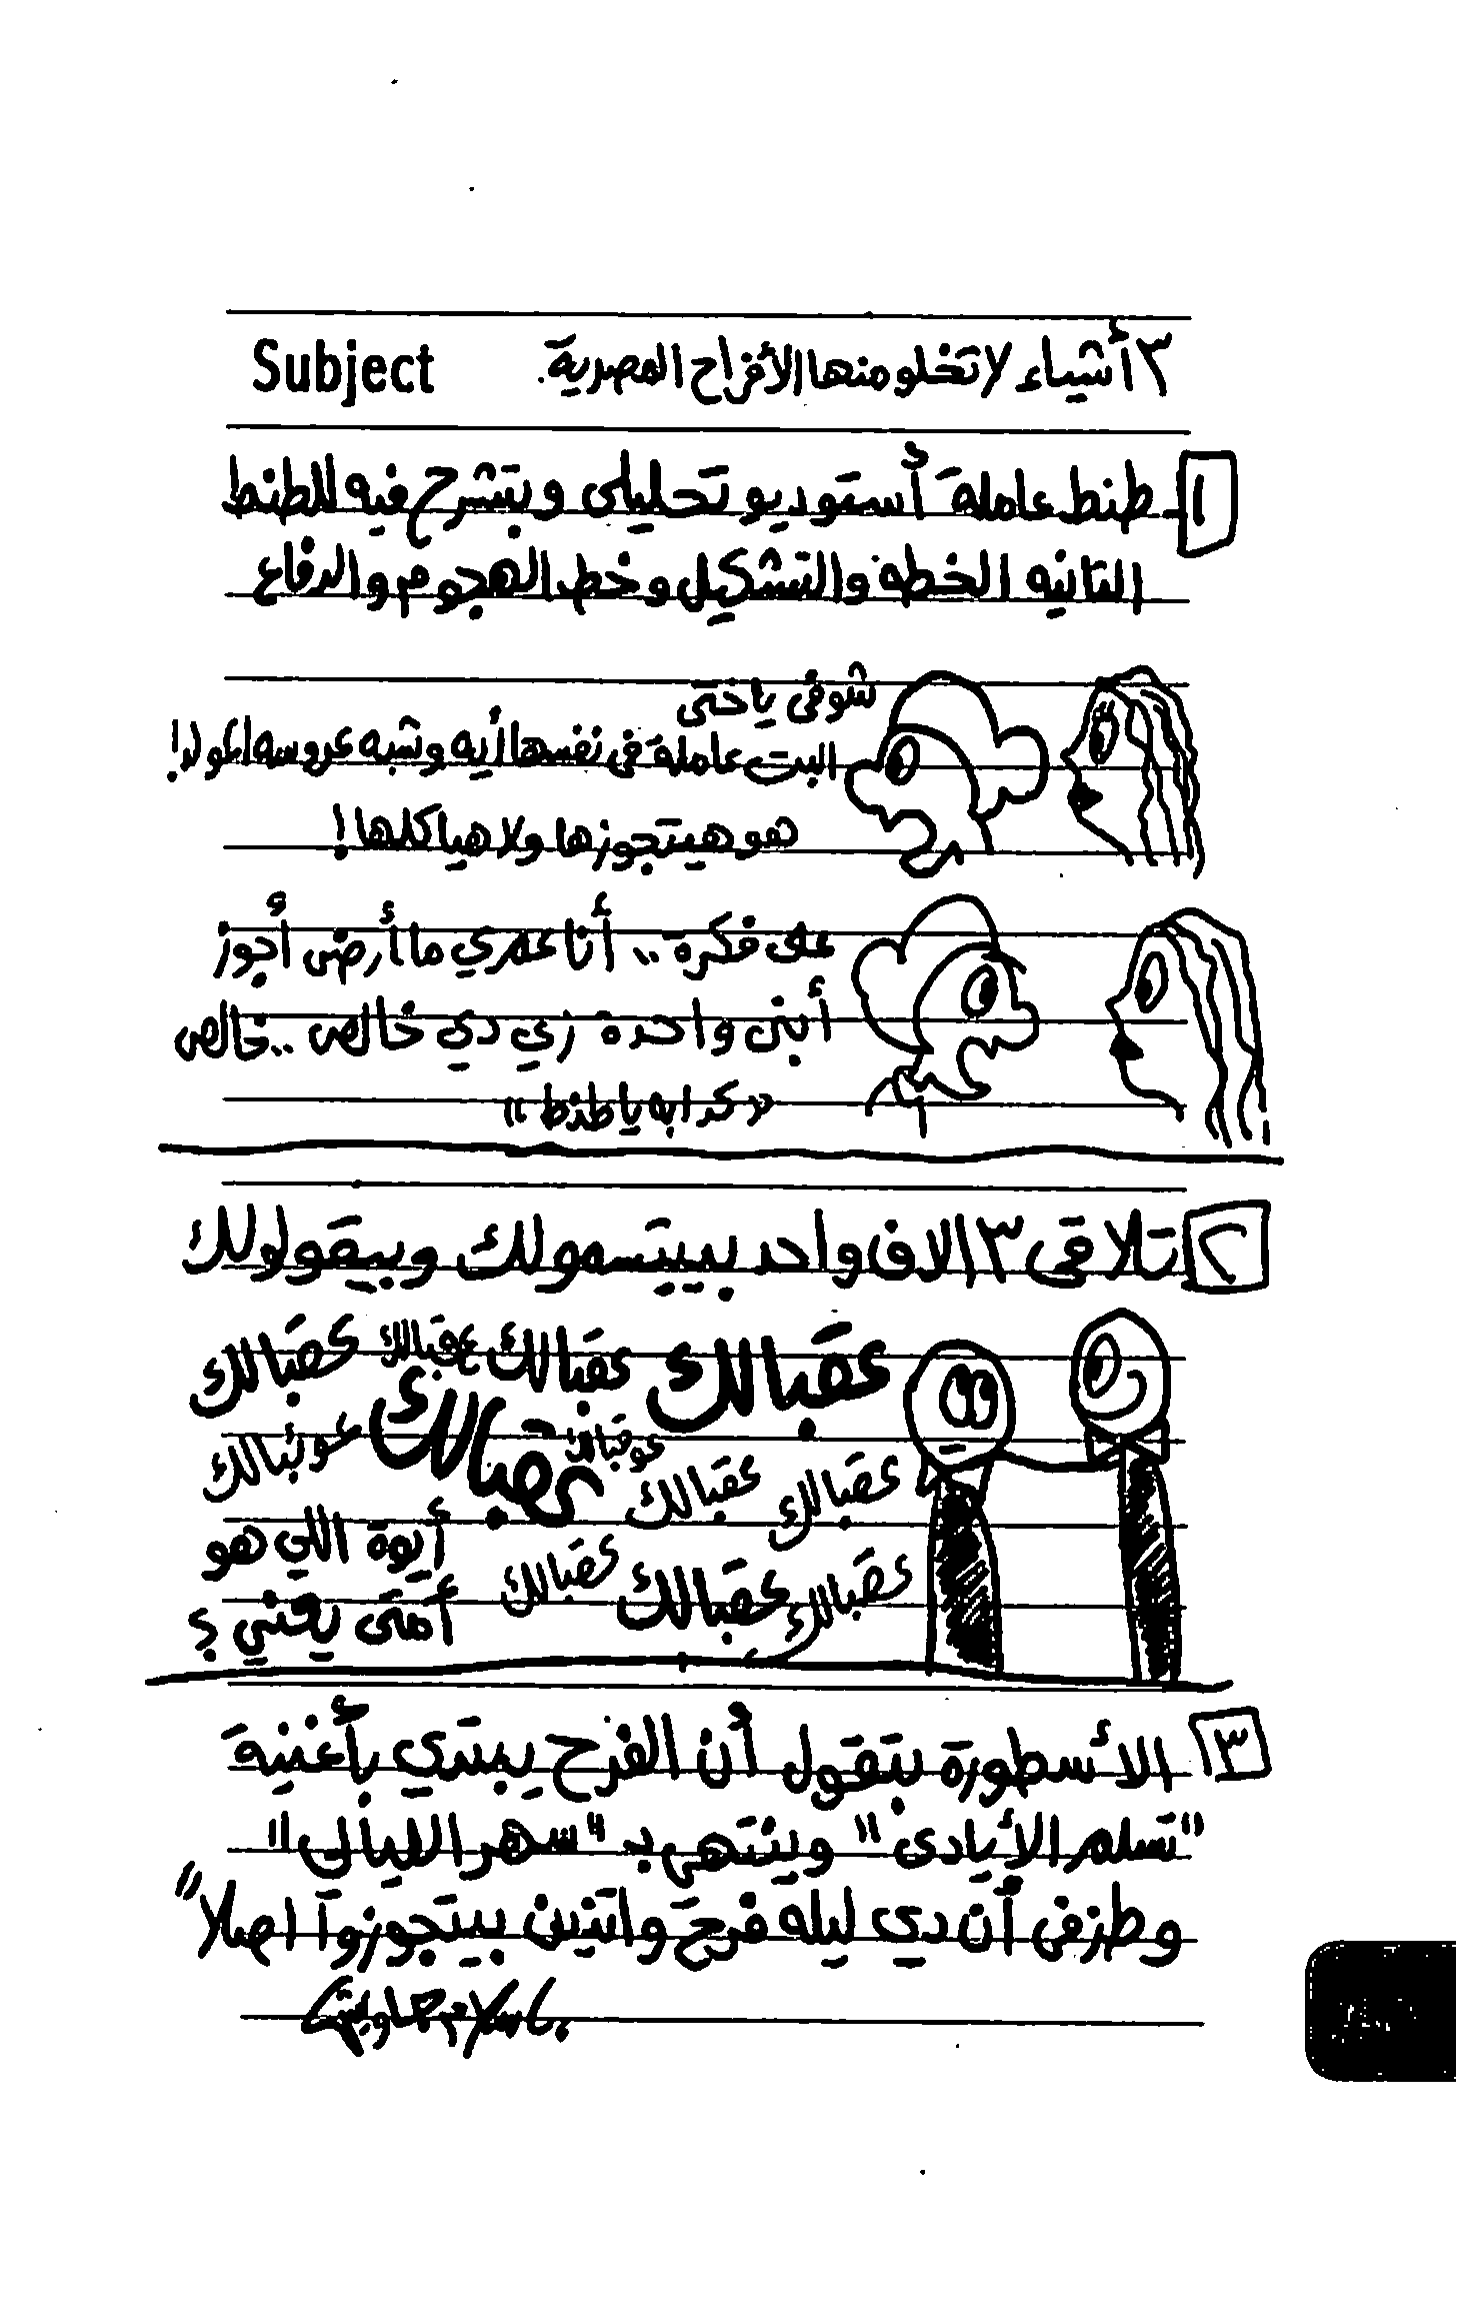 ٣ أشياء لا تخلو منها الأفراح المصرية.
Subject
١
- طنط عاملة أستوديو تحليلى وبتشرح فيه للطنط
التانيه الخطه والتشكيل وخط الهجوم والدفاع
شوفى ياختى
البت عاملة فى نفسها أيه وشبه عروسه المولد!
هو هيتجوزها ولا هياكلها!
على فكرة .. أنا عمري ما أرضى أجوز
أبنى واحدة زي دي خالص .. خالص
«كدابه يا طنط»
٢
تلاقى ٣ الاف واحد بيبتسمولك وبيقولولك
عقبالك عقبالك عقبالك عقبالك
عقبالك عقبالك
عقبالك عقبالك
عقبالك عقبالك عقبالك
أيوة اللي هو
أمتى يعني ؟
٣
الأسطورة بتقول أن الفرح يبتدي بأغنية
"تسلم الأيادى" وينتهى بـ "سهر الليالى"
وطز فى أن دي ليله فرح واتنين بيتجوزوا اصلا"
إسلام جاويش